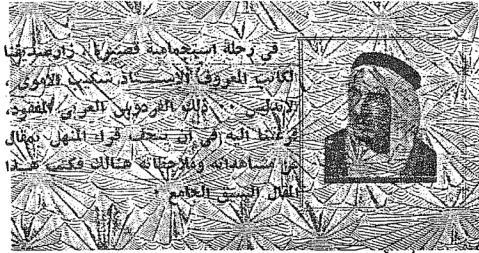 في رحلة استجمامية قصيرة ، زار صديقنا
الكاتب المعروف الاستاذ شكيب الاموى ،
الاندلس ٠٠ ذلك الفردوس العربى المفقود،
فرغبنا اليه فى ان يتحف قراء المنهل بمقال
عن مشاهداته وملاحظاته هنالك فكتب هذا
المقال الشيق الجامع ٠